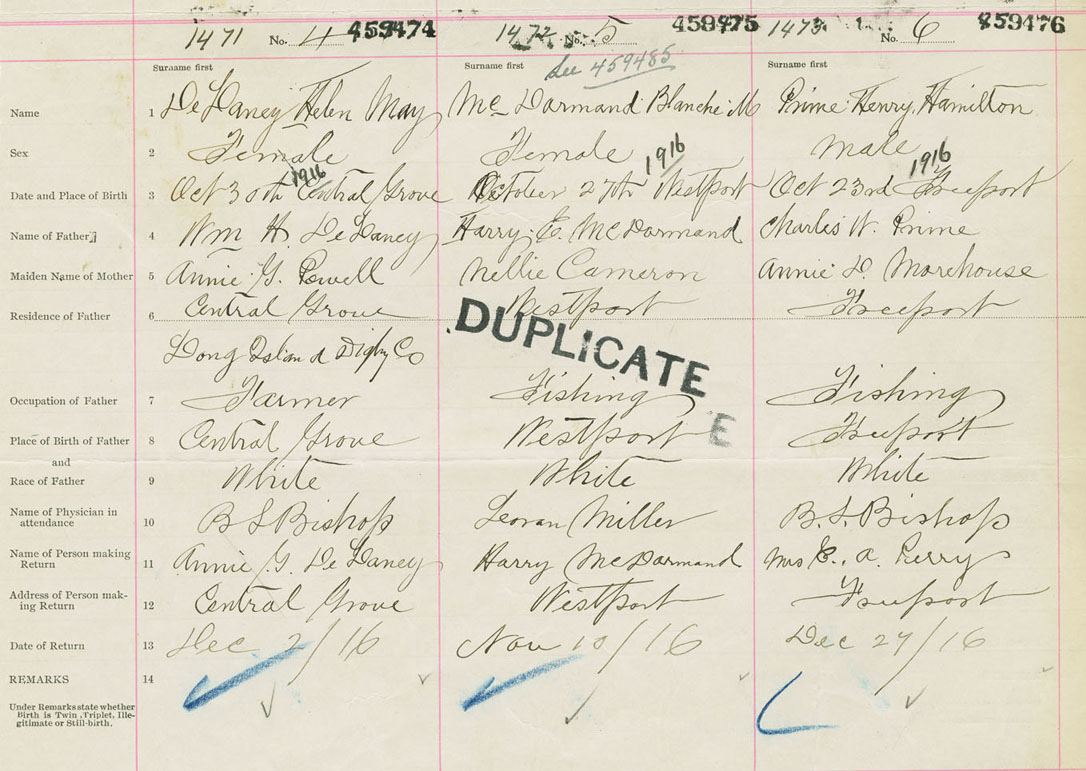 1471 No. 4 459474 1472 No. 5 459475 1473 No. 6 459476
See 459485
Surname first Surname first Surname first
Name 1 DeLaney Helen May McDormand Blanche M Prime Henry Hamilton
Sex 2 Female Female Male
1916 1916 1916
Date and Place of Birth 3 Oct 30th Central Grove October 27th Westport Oct 23rd Freeport
Name of Father 4 Wm H. DeLaney Harry E. McDormand Charles W. Prime
Maiden Name of Mother 5 Annie G. Powell Nellie Cameron Annie D. Morehouse
Residence of Father 6 Central Grove Westport Freeport
Long Island Digby Co
DUPLICATE
Occupation of Father 7 Farmer Fishing Fishing
Place of Birth of Father 8 Central Grove Westport Freeport
E
and
Race of Father 9 White White White
Name of Physician in
attendance 10 B L Bishop Miller B. L. Bishop
Name of Person making
Return 11 Annie G. DeLaney Harry McDormand Mrs E. A. Perry
Address of Person mak-
ing Return 12 Central Grove Westport Freeport
Date of Return 13 Dec 2/16 Nov 10/16 Dec 27/16
REMARKS 14
Under Remarks state whether
Birth is Twin, Triplet, Ille-
gitimate or Still-birth.